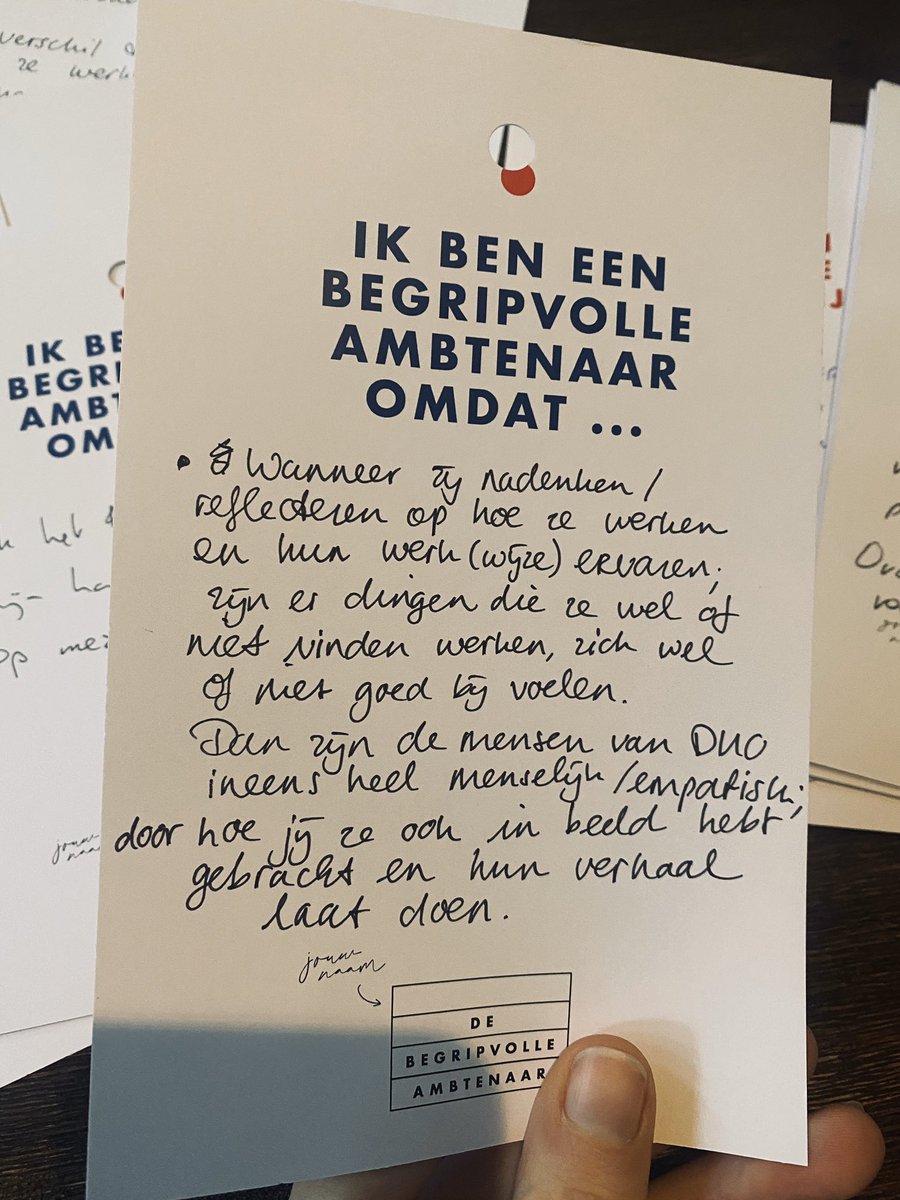 verschil
ze werk
IK BEN EEN
BEGRIPVOLLE
AMBTENAAR
OMDAT ...
• Wanneer zij nadenken/
reflecteren op hoe ze werken
en hun werk(wijze) ervaren;
zijn er dingen die ze wel óf
niet vinden werken, zich wel
óf niet goed bij voelen.
Dan zijn de mensen van DUO
ineens heel menselijk/empatisch;
door hoe jij ze ook in beeld hebt
gebracht en hun verhaal
laat doen.
jouw
naam
DE
BEGRIPVOLLE
AMBTENAAR
IK BE
BEGRI
AMBT
OM
het
op
jouw
naam